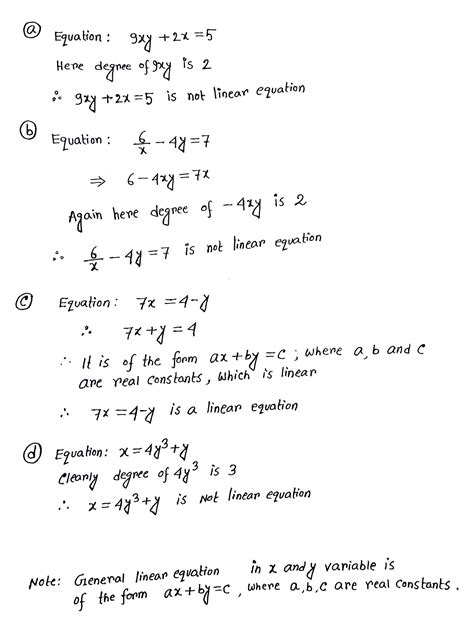 (a) Equation: 9xy + 2x = 5
Here degree of 9xy is 2
∴ 9xy + 2x = 5 is not linear equation
(b) Equation: 6/x - 4y = 7
⇒ 6 - 4xy = 7x
Again here degree of - 4xy is 2
∴ 6/x - 4y = 7 is not linear equation
(c) Equation: 7x = 4 - y
∴ 7x + y = 4
∵ It is of the form ax + by = c ; where a, b and c
are real constants, which is linear
∴ 7x = 4 - y is a linear equation
(d) Equation: x = 4y³ + y
Clearly degree of 4y³ is 3
∴ x = 4y³ + y is Not linear equation
Note: General linear equation in x and y variable is
of the form ax + by = c , where a,b,c are real constants.